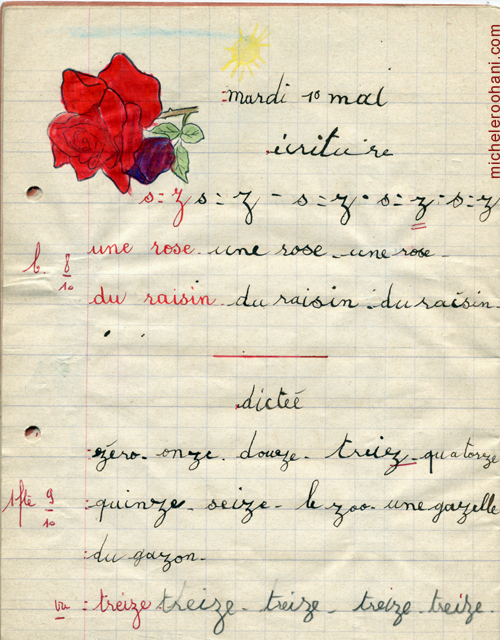 mardi 10 mai
écriture
s=z s=z - s=z - s=z - s=z
une rose - une rose - une rose -
b. 8/10
du raisin - du raisin - du raisin -
dictée
zéro - onze - douze - treiz - quatorze
1 fte 9/10
quinze - seize - le zoo - une gazelle
du gazon -
vu : treize treize - treize - treize - treize -
micheleroohani.com